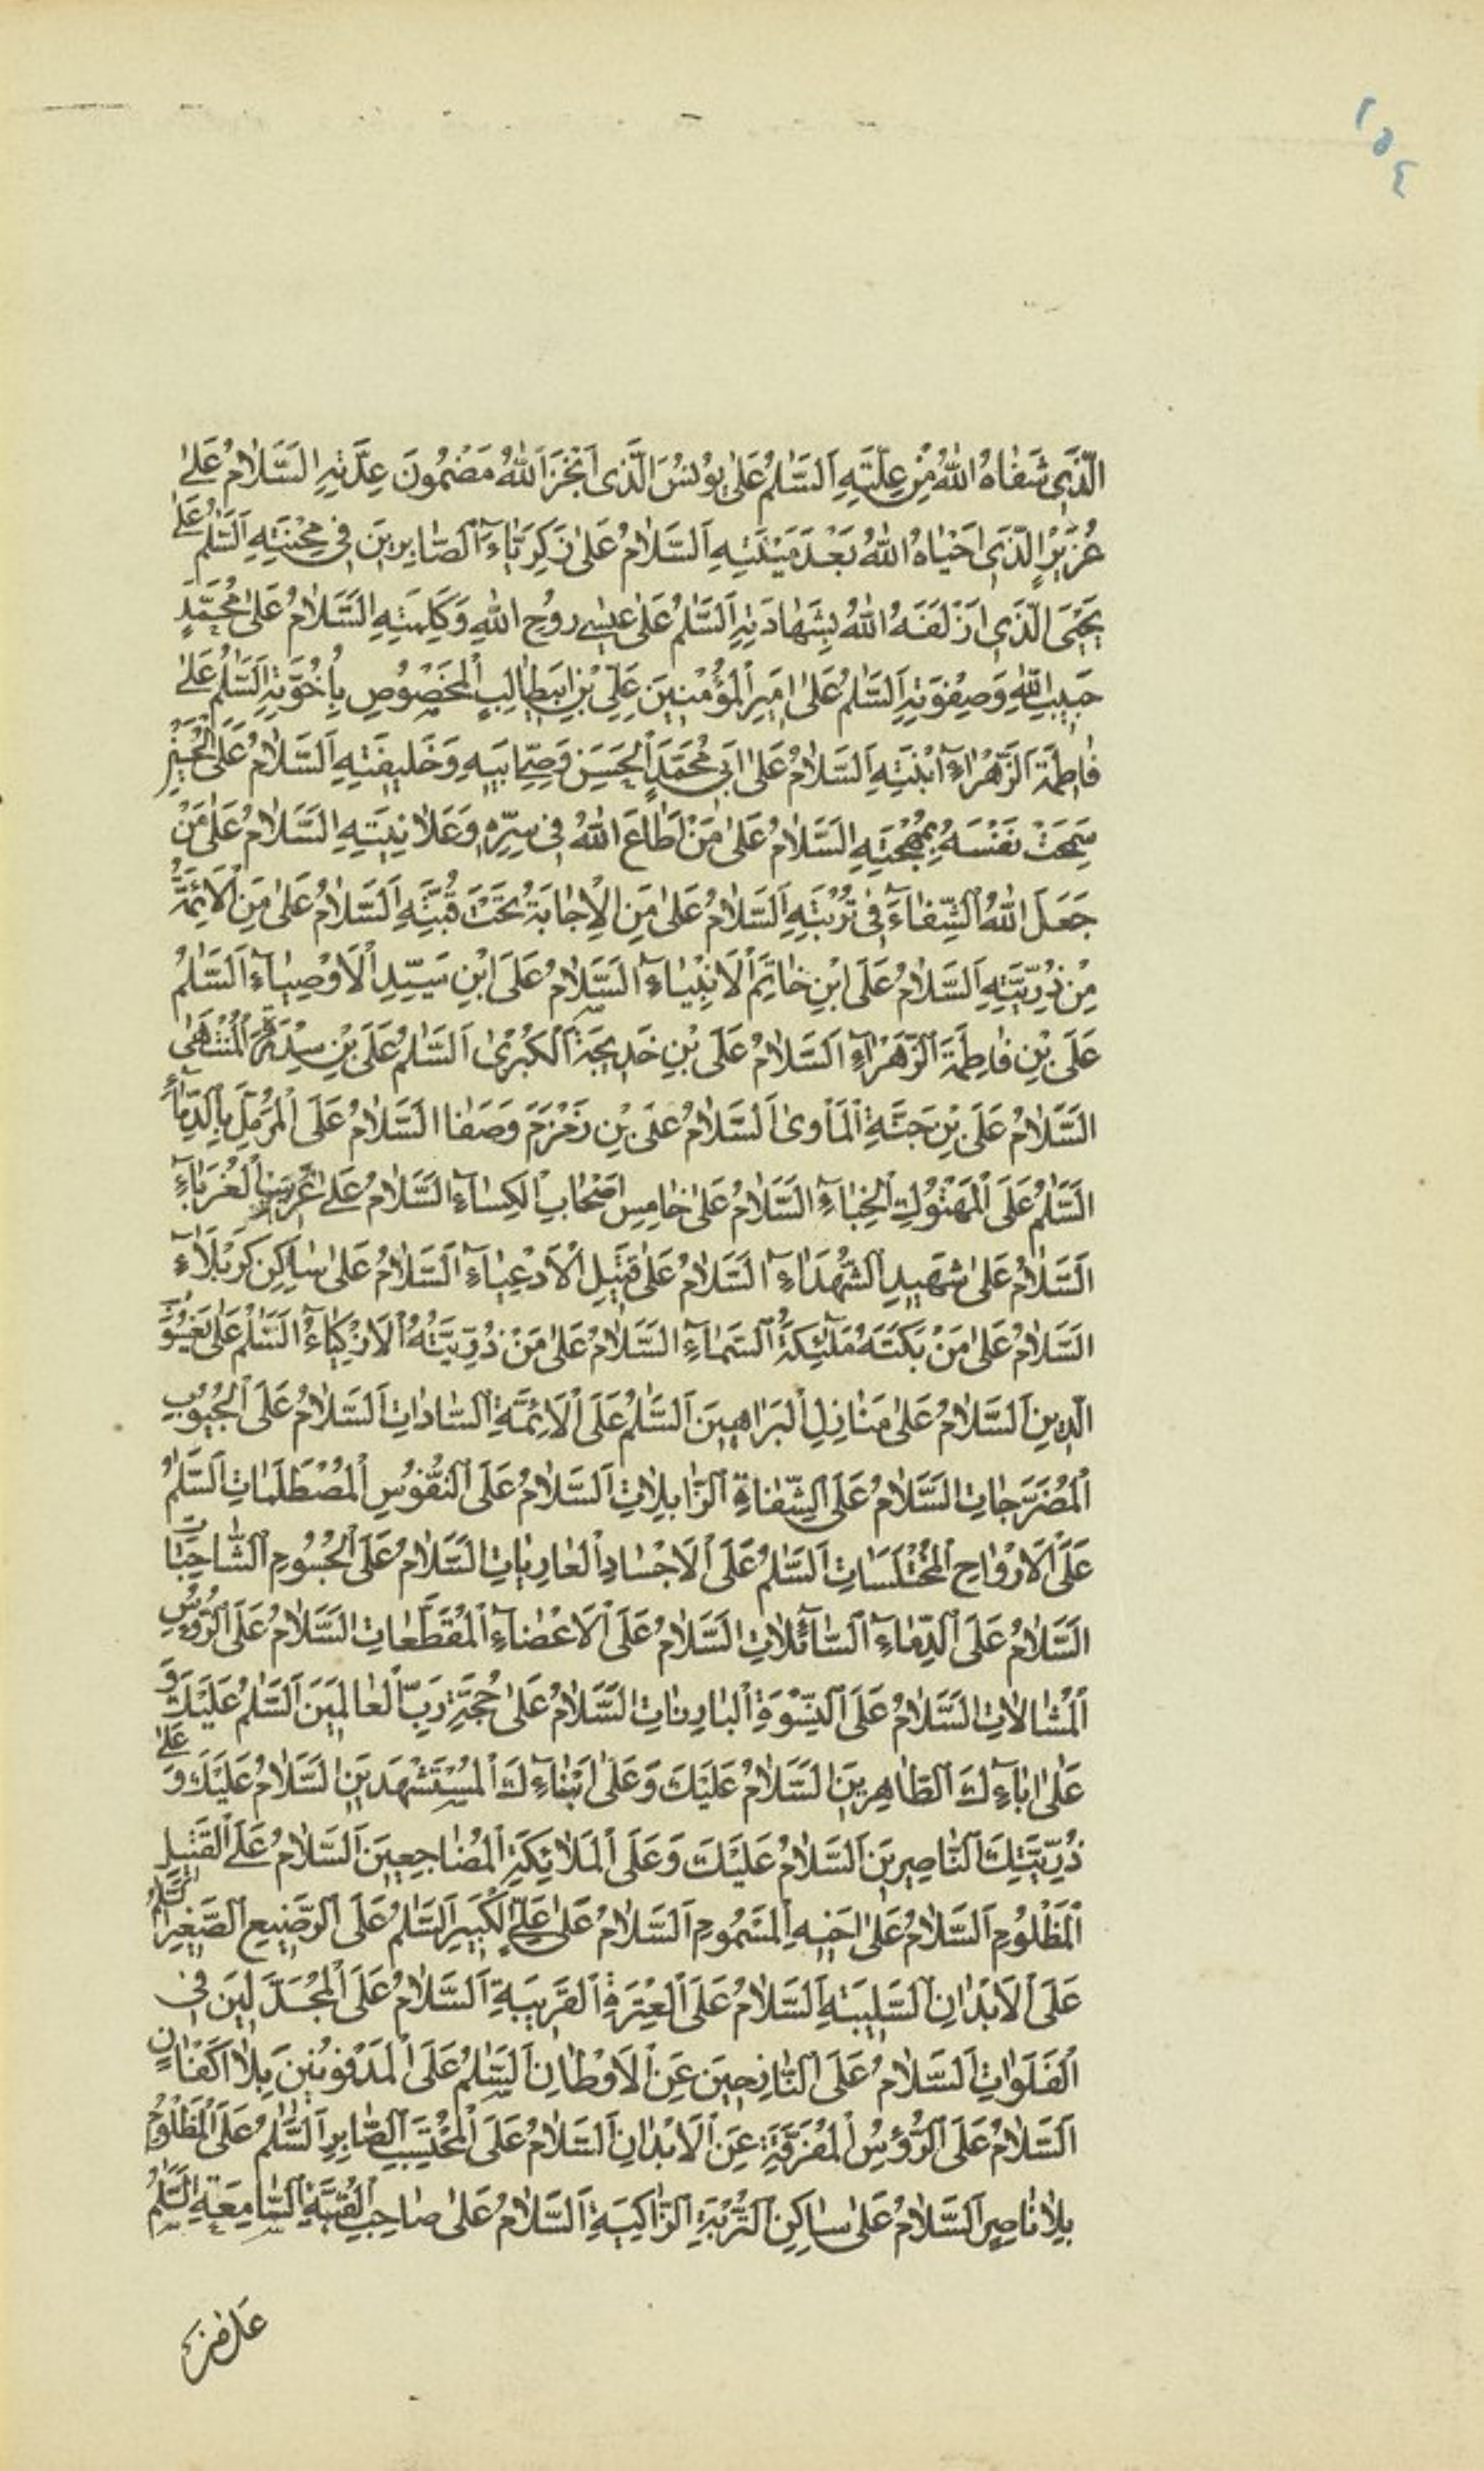 ١٥٤
الَّذِي شَفَاهُ اللهُ مِنْ عِلَّتِهِ اَلسَّلٰمُ عَلٰى يُونُسَ الَّذِى اَنْجَزَ اَللهُ مَضْمُونَ عِدَّتِهِ السَّلَامُ عَلٰى
عُزَيْرٍ الَّذِى اَحْيَاهُ اللهُ بَعْدَ مَيْتَتِهِ اَلسَّلَامُ عَلٰى زَكَرِيَّاءَ الصَّابِرِينَ فِى مِحْنَتِهِ اَلسَّلٰمُ عَلٰى
يَحْيَى الَّذِى اَزْلَفَهُ اللهُ بِشَهَادَتِهِ اَلسَّلٰمُ عَلٰى عِيسٰى رُوحِ اللهِ وَكَلِمَتِهِ السَّلَامُ عَلٰى مُحَمَّدٍ
حَبِيبِ اللهِ وَصِفْوَتِهِ اَلسَّلٰمُ عَلٰى اَمِيرِ الْمُؤْمِنِينَ عَلِيِّ بْنِ اَبِيطَالِبٍ الْمَخْصُوصِ بِاُخُوَّتِهِ اَلسَّلٰمُ عَلٰى
فَاطِمَةَ الزَّهْرَاءِ اَبْنَتِهِ اَلسَّلَامُ عَلٰى اَبِى مُحَمَّدٍ الْحَسَنِ وَصِىِّ اَبِيهِ وَخَلِيفَتِهِ اَلسَّلَامُ عَلَى الْحُسَيْنِ
سَمِحَتْ نَفْسَهُ بِمُهْجَتِهِ السَّلَامُ عَلٰى مَنْ اَطَاعَ اللهُ فِى سِرِّهِ وَعَلَانِيَتِهِ السَّلَامُ عَلٰى مَنْ
جَعَلَ اللهُ الشِّفَاءَ فِى تُرْبَتِهِ اَلسَّلَامُ عَلٰى مَنِ الْاِجَابَةُ تَحْتَ قُبَّتِهِ اَلسَّلَامُ عَلٰى مَنِ الْاَئِمَّةُ
مِنْ ذُرِّيَّتِهِ اَلسَّلَامُ عَلَى ابْنِ خَاتِمِ الْاَنْبِيَاءِ السَّلَامُ عَلَى ابْنِ سَيِّدِ الْاَوْصِيَاءِ اَلسَّلٰمُ
عَلَى بْنِ فَاطِمَةَ الزَّهْرَاءِ اَلسَّلَامُ عَلَى بْنِ خَدِيجَةَ الْكُبْرٰى اَلسَّلٰمُ عَلَى بْنِ سِدْرَةِ الْمُنْتَهٰى
السَّلَامُ عَلَى بْنِ جَنَّةِ الْمَاْوٰى اَلسَّلَامُ عَلَى بْنِ زَمْزَمَ وَصَفَا السَّلَامُ عَلَى الْمُرَمَّلِ بِالدِّمَاءِ
السَّلٰمُ عَلَى الْمَهْتُوكِ الْخِبَاءِ السَّلَامُ عَلٰى خَامِسِ اَصْحَابِ الْكِسَاءِ السَّلَامُ عَلٰى غَرِيبِ الْغُرَبَاءِ
السَّلَامُ عَلٰى شَهِيدِ الشُّهَدَاءِ السَّلَامُ عَلٰى قَتِيلِ الْاَدْعِيَاءِ اَلسَّلَامُ عَلٰى سَاكِنِ كَرْبَلَاءَ
السَّلَامُ عَلٰى مَنْ بَكَتَهُ مَلٰئِكَةُ السَّمَاءِ السَّلَامُ عَلٰى مَنْ ذُرِّيَّتُهُ الْاَزْكِيَاءُ السَّلٰمُ عَلٰى يَعْسُوبِ
الدِّينِ اَلسَّلَامُ عَلٰى مَنَازِلِ الْبَرَاهِينَ اَلسَّلٰمُ عَلَى الْاَئِمَّةِ السَّادَاتِ اَلسَّلَامُ عَلَى الْجُيُوبِ
الْمُضَرَّجَاتِ السَّلَامُ عَلَى الشِّفَاةِ الزَّابِلَاتِ اَلسَّلَامُ عَلَى النُّفُوسِ الْمُصْطَلَمَاتِ اَلسَّلٰمُ
عَلَى الْاَرْوَاحِ الْمُخْتَلَسَاتِ اَلسَّلٰمُ عَلَى الْاَجْسَادِ الْعَارِيَاتِ السَّلَامُ عَلَى الْجُسُومِ الشَّاحِبَاتِ
السَّلَامُ عَلَى الدِّمَاءِ السَّائِلَاتِ السَّلَامُ عَلَى الْاَعْضَاءِ الْمُقَطَّعَاتِ السَّلَامُ عَلَى الرُّؤُسِ
الْمُشَالَاتِ السَّلَامُ عَلَى النِّسْوَةِ الْبَارِزَاتِ السَّلَامُ عَلٰى حُجَّةِ رَبِّ الْعَالَمِينَ اَلسَّلٰمُ عَلَيْكَ وَ
عَلٰى اٰبَاءِكَ الطَّاهِرِينَ السَّلَامُ عَلَيْكَ وَعَلٰى اَبْنَاءِكَ الْمُسْتَشْهَدِينَ السَّلَامُ عَلَيْكَ وَ عَلٰى
ذُرِّيَّتِكَ النَّاصِرِينَ اَلسَّلَامُ عَلَيْكَ وَعَلَى الْمَلَائِكَةِ الْمُضَاجِعِينَ اَلسَّلَامُ عَلَى الْقَتِيلِ
الْمَظْلُومِ اَلسَّلَامُ عَلٰى اَخِيهِ الْمَسْمُومِ اَلسَّلَامُ عَلٰى عَلِيٍّ الْكَبِيرِ اَلسَّلٰمُ عَلَى الرَّضِيعِ الصَّغِيرِ السَّلٰمُ
عَلَى الْاَبْدَانِ السَّلِيبَةِ اَلسَّلَامُ عَلَى الْعِتْرَةِ الْقَرِيبَةِ اَلسَّلَامُ عَلَى الْمُجَدَّلِينَ فِى
الْفَلَوَاتِ اَلسَّلَامُ عَلَى النَّازِحِينَ عَنِ الْاَوْطَانِ اَلسَّلٰمُ عَلَى الْمَدْفُونِينَ بِلَا اَكْفَانٍ
اَلسَّلَامُ عَلَى الرُّؤُسِ الْمُفَرَّقَةِ عَنِ الْاَبْدَانِ اَلسَّلَامُ عَلَى الْمُحْتَسِبِ الصَّابِرِ اَلسَّلٰمُ عَلَى الْمَظْلُومِ
بِلَا نَاصِرٍ اَلسَّلَامُ عَلٰى سَاكِنِ التُّرْبَةِ الزَّاكِيَةِ اَلسَّلَامُ عَلٰى صَاحِبِ الْقُبَّةِ السَّامِعَةِ السَّلٰمُ
عَلٰى مَنْ